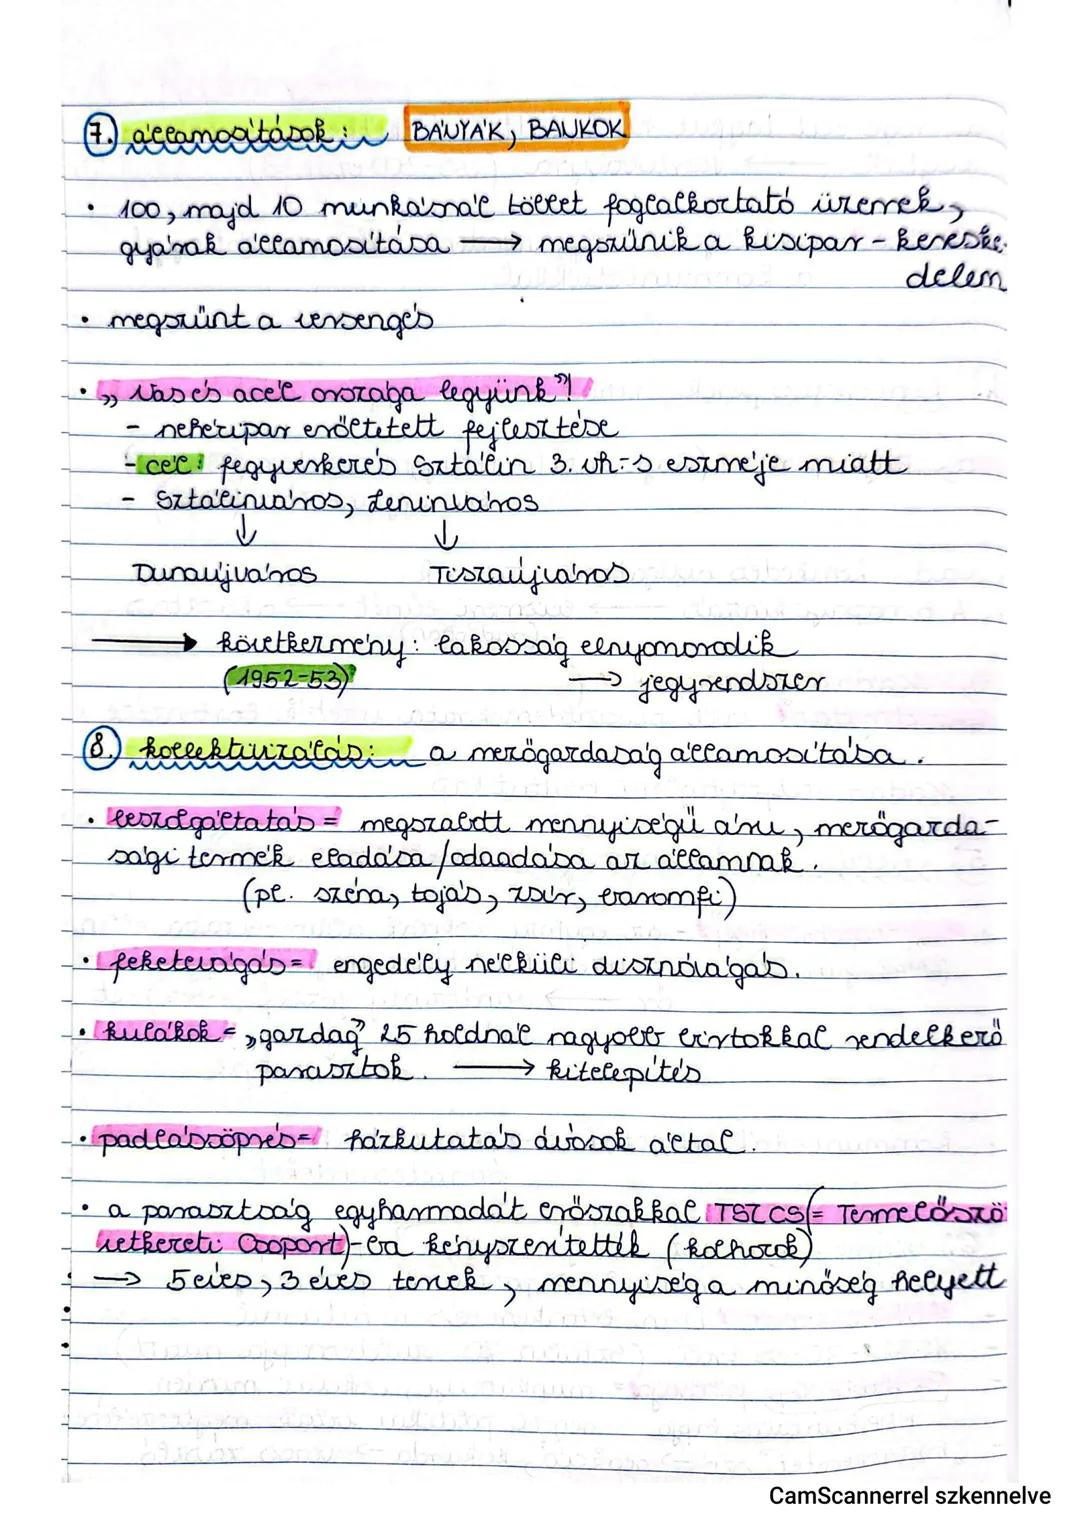 7. államosítások: BÁNYÁK, BANKOK
• 100, majd 10 munkásnál többet foglalkoztató üzemek,
gyárak államosítása → megszűnik a kisipar - keres­ke-
delem
• megszűnt a versengés
• „Vas és acél országa legyünk"!
- nehézipar erőltetett fejlesztése
- cél: fegyverkezés Sztálin 3. vh-s eszméje miatt
- Sztálinváros, Leninváros
↓ ↓
Dunaújváros Tiszaújváros
→ következmény: lakosság elnyomorodik
(1952-53) → jegyrendszer
8. kollektivizálás: a mezőgazdaság államosítása.
• beszolgáltatás = megszabott mennyiségű áru, mezőgazda-
sági termék eladása/odaadása az államnak.
(pl. széna, tojás, zsír, baromfi)
• feketevágás = engedély nélküli disznóvágás.
• kulákok = „gazdag" 25 holdnál nagyobb birtokkal rendelkező
parasztok. → kitelepítés
• padlássöprés = házkutatás ávósok által.
• a parasztság egyharmadát erőszakkal TSZCS (= Termelőszö
vetkezeti Csoport)-ba kényszerítették (kolhozok)
→ 5 éves, 3 éves tervek, mennyiség a minőség helyett
CamScannerrel szkennelve